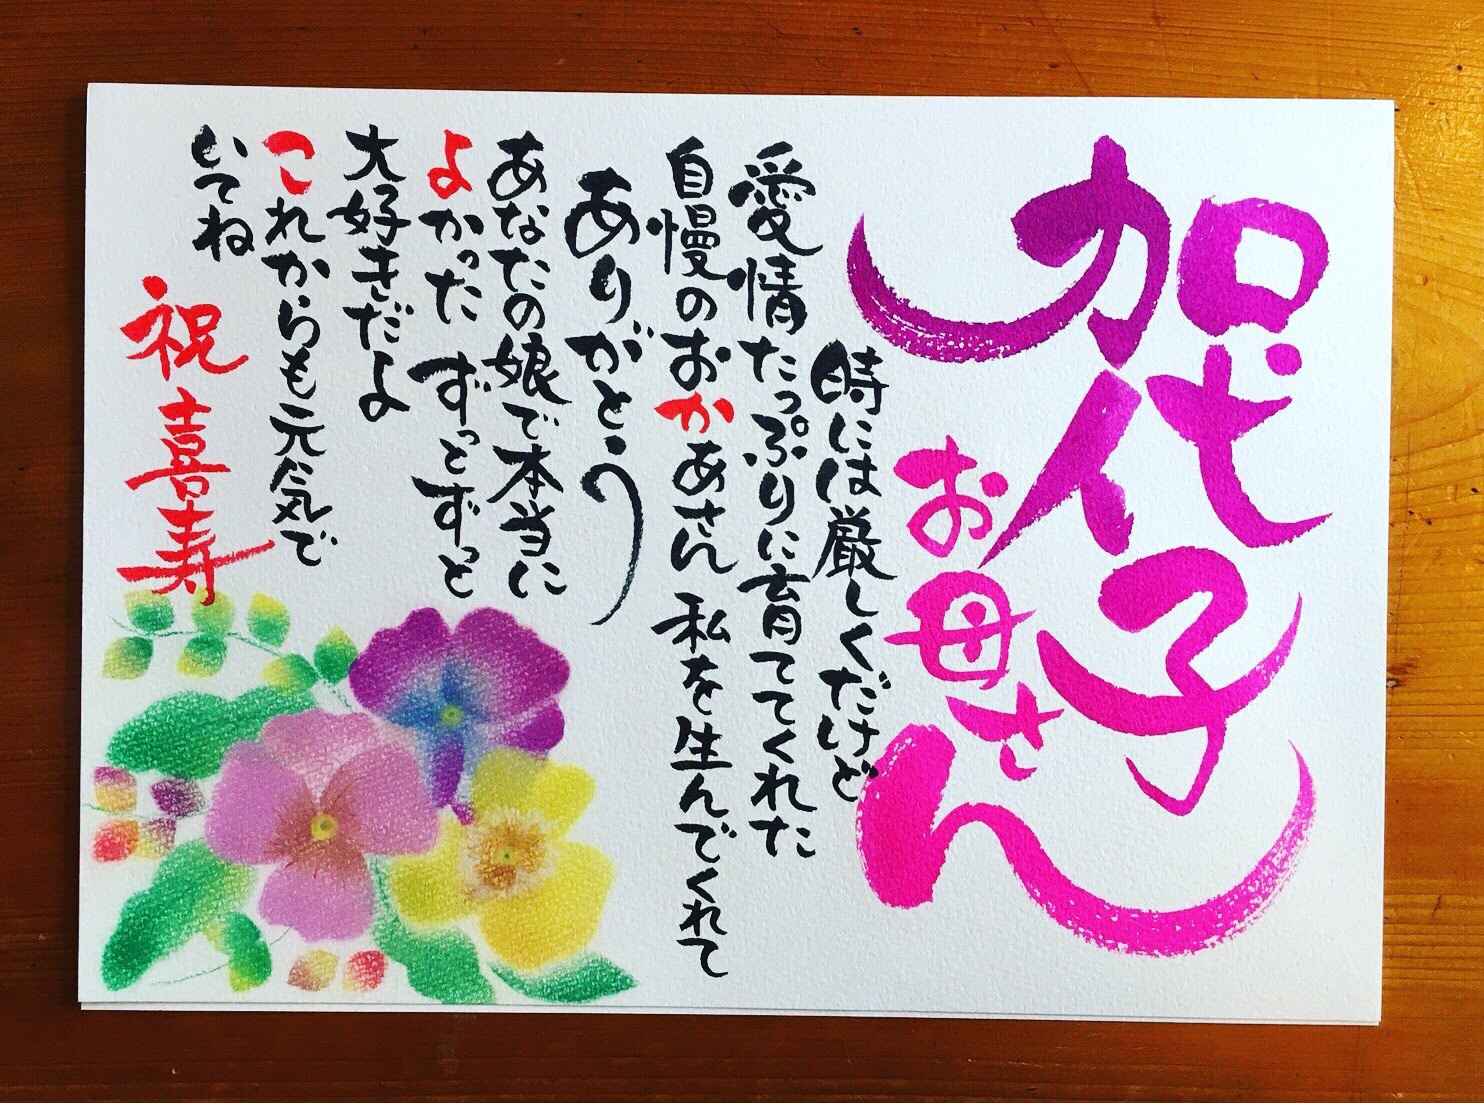 加代子
お母さん
時には厳しくだけど
愛情たっぷりに育ててくれた
自慢のおかあさん 私を生んでくれて
ありがとう
あなたの娘で本当に
よかった ずっとずっと
大好きだよ
これからも元気で
いてね
祝喜寿